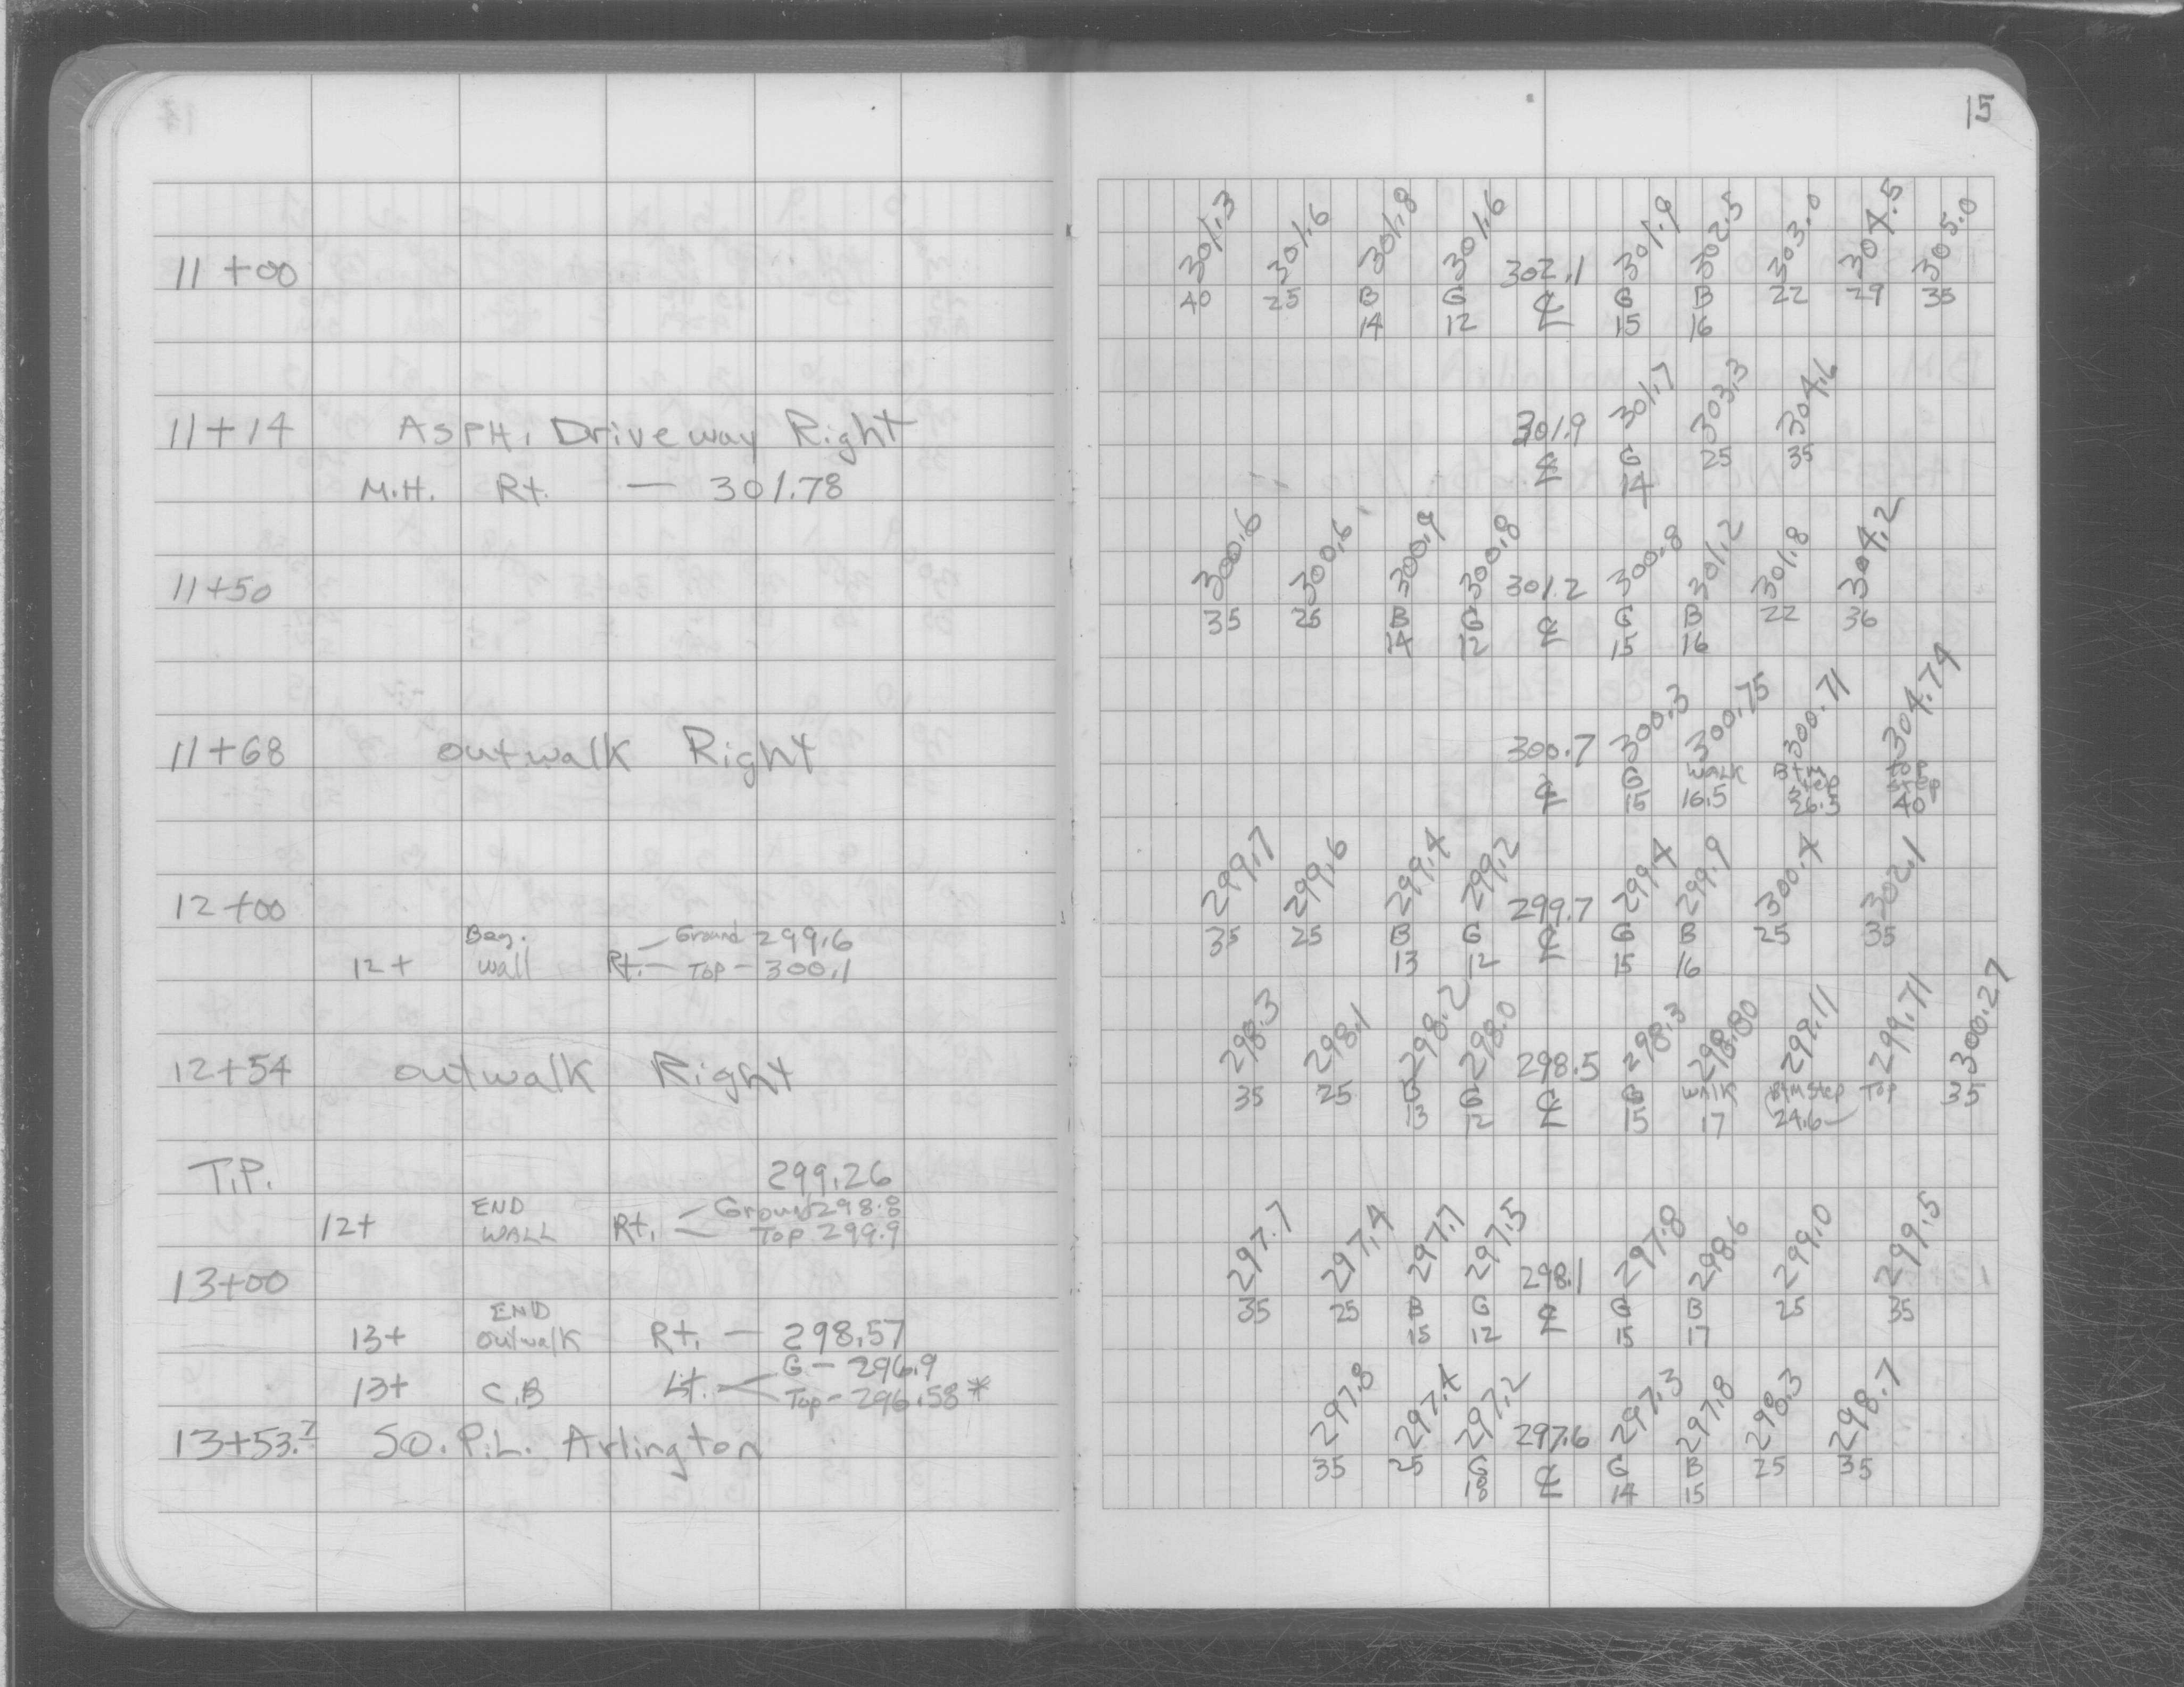 15
11+00 301.3 301.6 301.8 301.6 302.1 301.9 302.5 303.0 304.5 305.0
40 25 B G ℄ G B 22 29 35
14 12 15 16
11+14 ASPH. Driveway Right 301.9 301.7 303.3 304.6
℄ G 25 35
M.H. Rt. — 301.78 14
11+50 300.6 300.6 300.9 300.8 301.2 300.8 301.2 301.8 304.2
35 25 B G ℄ G B 22 36
14 12 15 16
11+68 outwalk Right 300.7 300.3 300.75 300.71 304.74
℄ G WALK Btm Top
step step
15 16.5 26.5 40
12+00 299.7 299.6 299.4 299.2 299.7 299.4 299.9 300.4 302.1
Beg. Ground 299.6 35 25 B G ℄ G B 25 35
12+ wall Rt. — Top — 300.1 13 12 15 16
12+54 outwalk Right 298.3 298.1 298.2 298.0 298.5 298.3 298.80 299.11 299.71 300.27
35 25 B G ℄ G WALK Btm Step Top 35
13 12 15 17 24.6
T.P. 299.26
END Ground 298.8
12+ WALL Rt. Top 299.9
13+00 297.7 297.4 297.7 297.5 298.1 297.8 298.6 299.0 299.5
END 35 25 B G ℄ G B 25 35
13+ outwalk Rt. — 298.57 15 12 15 17
G — 296.9
13+ C.B Lt. Top — 296.58*
13+53.7 SO. P.L. Arlington 297.8 297.4 297.2 297.6 297.3 297.8 298.3 298.7
35 25 G ℄ G B 25 35
18 14 15